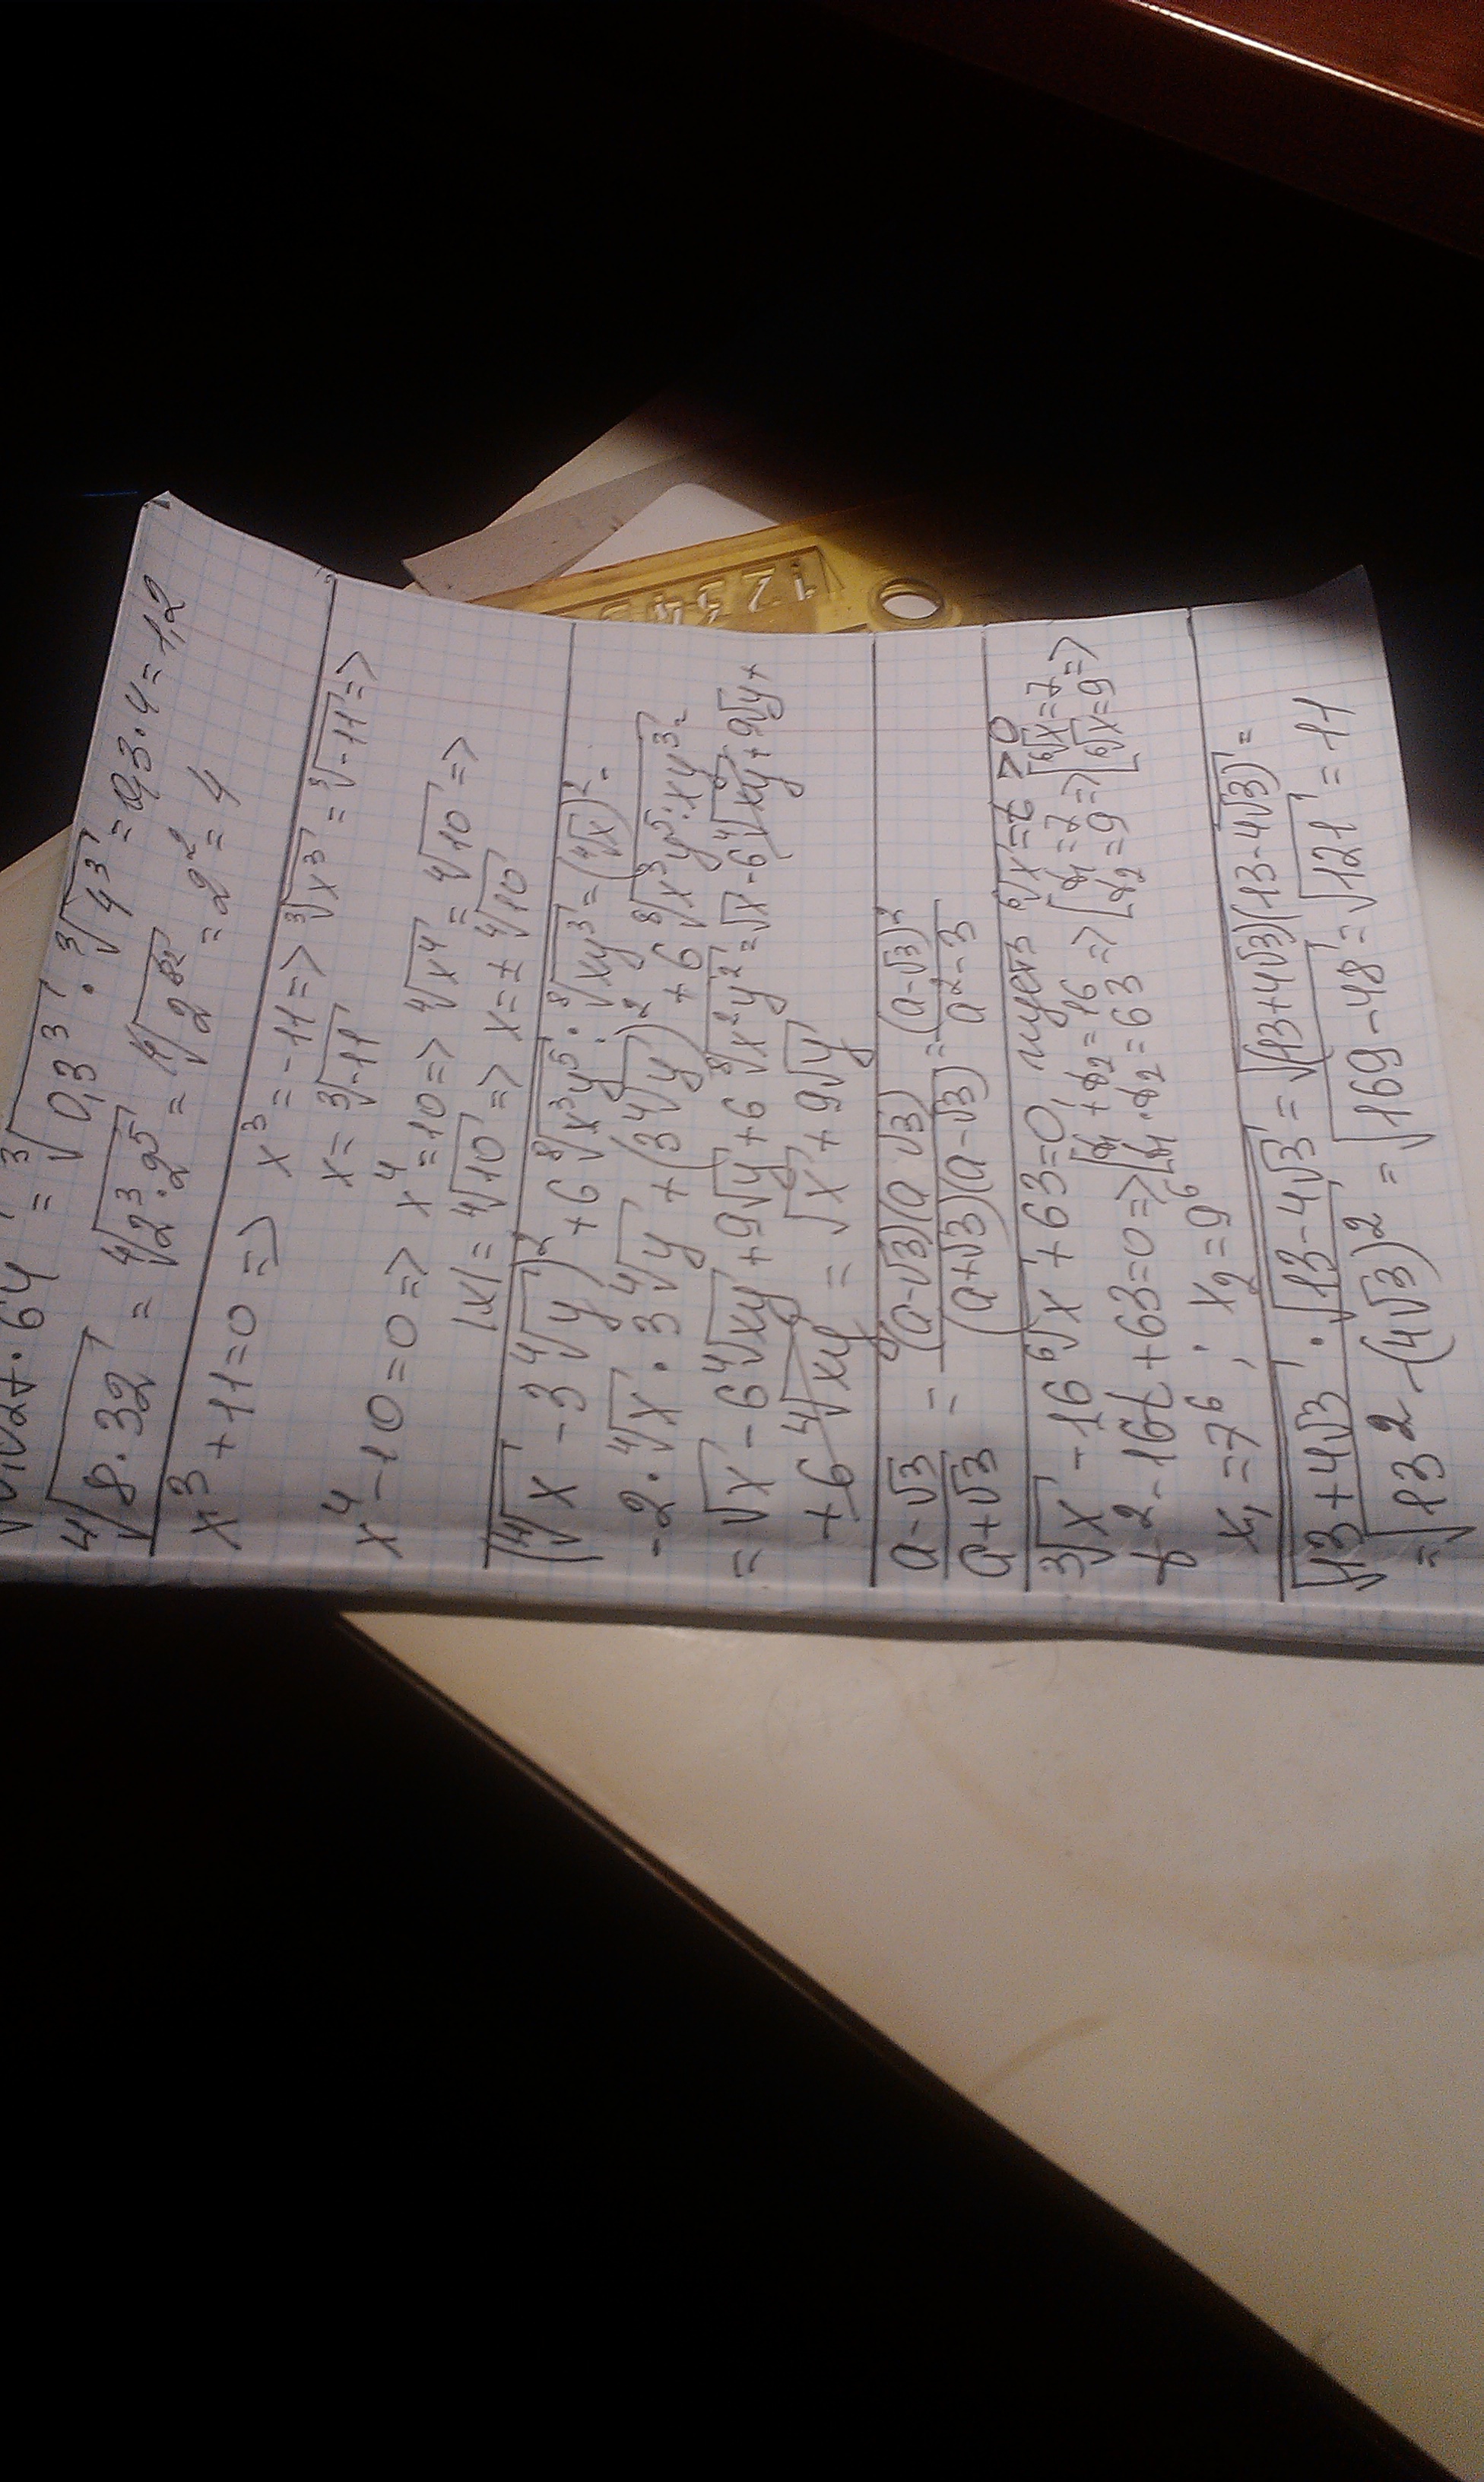 ∛0,027·64 = ∛0,3³ · ∛4³ = 0,3·4 = 1,2
⁴√8·32 = ⁴√2³·2⁵ = ⁴√2⁸ = 2² = 4
x³+11=0 => x³ = -11 => ∛x³ = ∛-11 =>
x = ∛-11
x⁴-10=0 => x⁴=10 => ⁴√x⁴ = ⁴√10 =>
|x| = ⁴√10 => x = ± ⁴√10
(⁴√x - 3⁴√y)² + 6 ⁸√x³y⁵ · ⁸√xy³ = (⁴√x)² -
-2·⁴√x·3⁴√y + (3⁴√y)² + 6 ⁸√x³y⁵·xy³ =
= √x - 6⁴√xy + 9√y + 6 ⁸√x²y² = √x - 6⁴√xy + 9√y +
+ 6⁴√xy = √x + 9√y
(a-√3)/(a+√3) = (a-√3)(a-√3)/(a+√3)(a-√3) = (a-√3)²/(a²-3)
∛x - 16 ⁶√x + 63=0, пусть ⁶√x = t > 0
t²-16t+63=0 => [t₁+t₂=16 t₁·t₂=63 => [t₁=7 t₂=9 => [⁶√x=7 ⁶√x=9 =>
x₁=7⁶; x₂=9⁶
√13+4√3 · √13-4√3 = √(13+4√3)(13-4√3) =
= √13²-(4√3)² = √169-48 = √121 = 11
1 2 3 4 5